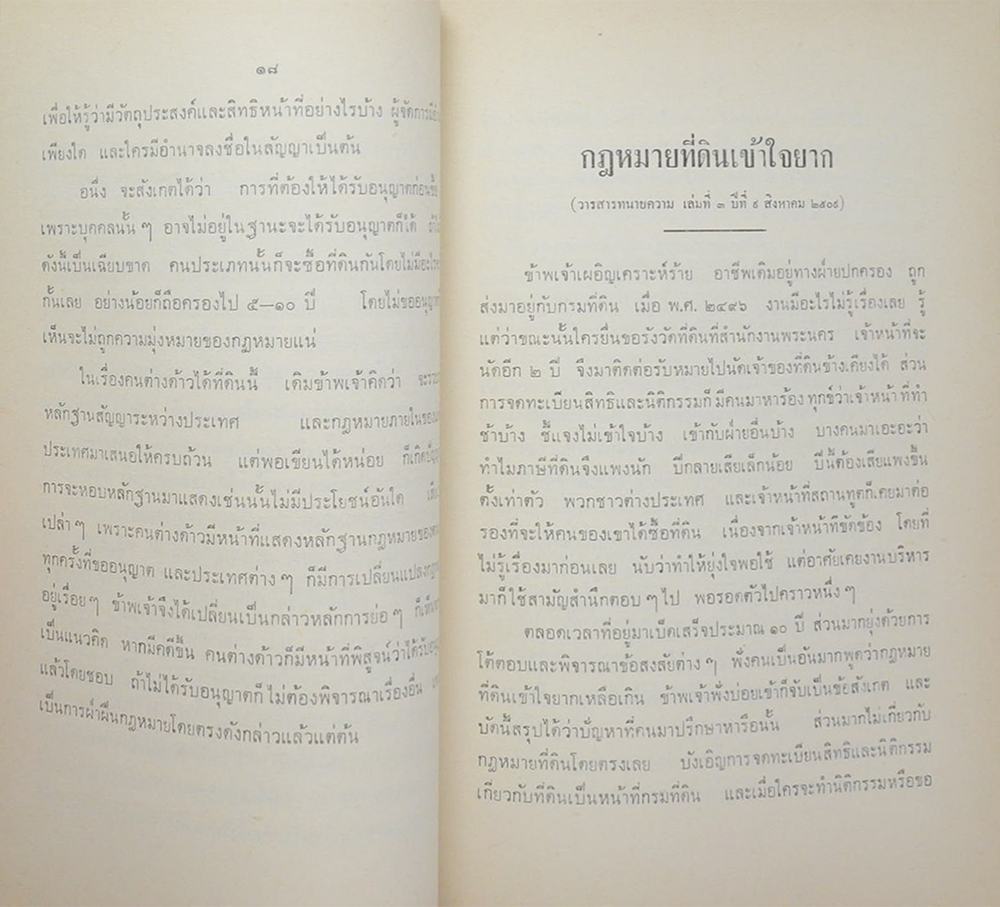 ๑๘
เพื่อให้รู้ว่ามีวัตถุประสงค์และสิทธิหน้าที่อย่างไรบ้าง ผู้จัดการมี
เพียงใด และใครมีอำนาจลงชื่อในสัญญาเป็นต้น
อนึ่ง จะสังเกตได้ว่า การที่ต้องให้ได้รับอนุญาตก่อน
เพราะบุคคลนั้น ๆ อาจไม่อยู่ในฐานะจะได้รับอนุญาตก็ได้
ดังนี้เป็นเฉียบขาด คนประเภทนั้นก็จะซื้อที่ดินกันโดยไม่มีอะไร
กั้นเลย อย่างน้อยก็ถือครองไป ๕—๑๐ ปี โดยไม่ขออนุญาต
เห็นจะไม่ถูกความมุ่งหมายของกฎหมายแน่
ในเรื่องคนต่างด้าวได้ที่ดินนี้ เดิมข้าพเจ้าคิดว่า
หลักฐานสัญญาระหว่างประเทศ และกฎหมายภายใน
ประเทศมาเสนอให้ครบถ้วน แต่พอเขียนได้หน่อย ก็เกิด
การจะหอบหลักฐานมาแสดงเช่นนั้นไม่มีประโยชน์อันใด
เปล่า ๆ เพราะคนต่างด้าวมีหน้าที่แสดงหลักฐานกฎหมายของ
ทุกครั้งที่ขออนุญาต และประเทศต่าง ๆ ก็มีการเปลี่ยนแปลง
อยู่เรื่อย ๆ ข้าพเจ้าจึงได้เปลี่ยนเป็นกล่าวหลักการย่อ ๆ
เป็นแนวคิด หากมีคดีขึ้น คนต่างด้าวก็มีหน้าที่พิสูจน์ว่าได้รับ
แล้วโดยชอบ ถ้าไม่ได้รับอนุญาตก็ไม่ต้องพิจารณาเรื่องอื่น
เป็นการฝ่าฝืนกฎหมายโดยตรงดังกล่าวแล้วแต่ต้น
กฎหมายที่ดินเข้าใจยาก
(วารสารทนายความ เล่มที่ ๓ ปีที่ ๙ สิงหาคม ๒๕๐๙)
ข้าพเจ้าเผอิญเคราะห์ร้าย อาชีพเดิมอยู่ทางฝ่ายปกครอง ถูก
ส่งมาอยู่กับกรมที่ดิน เมื่อ พ.ศ. ๒๔๙๖ งานมีอะไรไม่รู้เรื่องเลย รู้
แต่ว่าขณะนั้นใครยื่นขอรังวัดที่ดินที่สำนักงานพระนคร เจ้าหน้าที่จะ
นัดอีก ๒ ปี จึงมาติดต่อรับหมายไปนัดเจ้าของที่ดินข้างเคียงได้ ส่วน
การจดทะเบียนสิทธิและนิติกรรมก็มีคนมาหาร้องทุกข์ว่าเจ้าหน้าที่ทำ
ช้าบ้าง ชี้แจงไม่เข้าใจบ้าง เข้ากับฝ่ายอื่นบ้าง บางคนมาเอะอะว่า
ทำไมภาษีที่ดินจึงแพงนัก ปีกลายเสียเล็กน้อย ปีนี้ต้องเสียแพงขึ้น
ตั้งเท่าตัว พวกชาวต่างประเทศ และเจ้าหน้าที่สถานทูตก็เคยมาต่อ
รองที่จะให้คนของเขาได้ซื้อที่ดิน เนื่องจากเจ้าหน้าที่ขัดข้อง โดยที่
ไม่รู้เรื่องมาก่อนเลย นับว่าทำให้ยุ่งใจพอใช้ แต่อาศัยเคยงานบริหาร
มาก็ใช้สามัญสำนึกตอบ ๆ ไป พอรอดตัวไปคราวหนึ่ง ๆ
ตลอดเวลาที่อยู่มาเบ็ดเสร็จประมาณ ๑๐ ปี ส่วนมากยุ่งด้วยการ
โต้ตอบและพิจารณาข้อสงสัยต่าง ๆ ฟังคนเป็นอันมากพูดว่ากฎหมาย
ที่ดินเข้าใจยากเหลือเกิน ข้าพเจ้าฟังบ่อยเข้าก็จับเป็นข้อสังเกต และ
บัดนี้สรุปได้ว่าปัญหาที่คนมาปรึกษาหารือนั้น ส่วนมากไม่เกี่ยวกับ
กฎหมายที่ดินโดยตรงเลย บังเอิญการจดทะเบียนสิทธิและนิติกรรม
เกี่ยวกับที่ดินเป็นหน้าที่กรมที่ดิน และเมื่อใครจะทำนิติกรรมหรือขอ